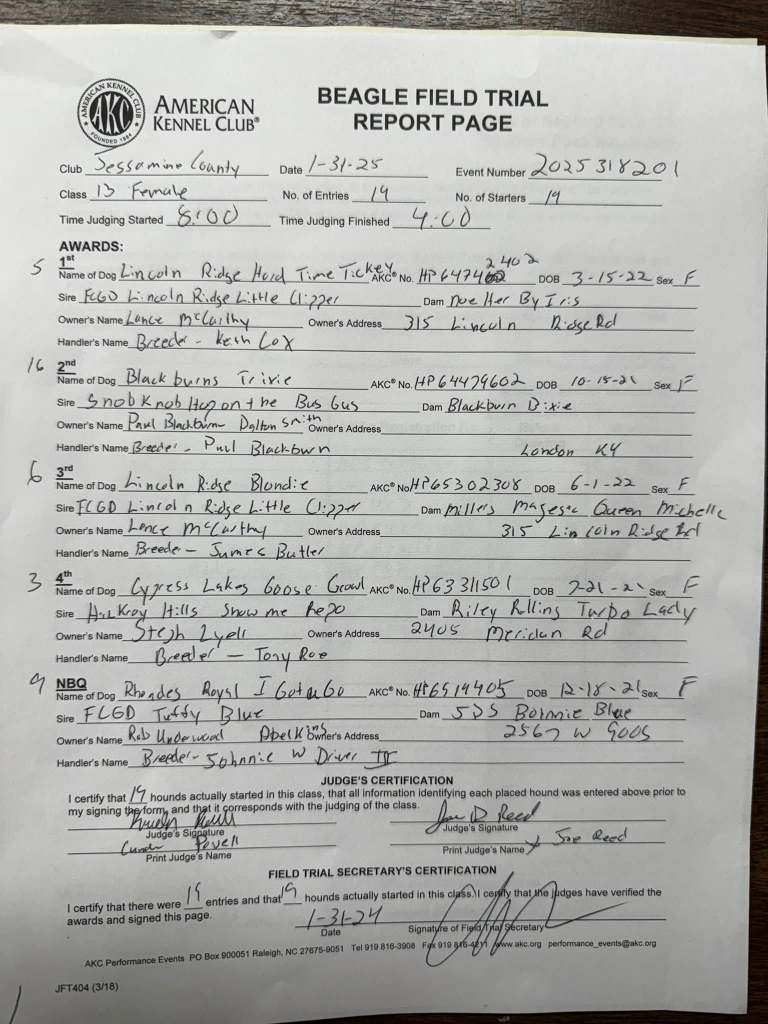 AMERICAN KENNEL CLUB
AKC
FOUNDED 1884
AMERICAN
KENNEL CLUB®
BEAGLE FIELD TRIAL
REPORT PAGE
Club Jessamine County Date 1-31-25 Event Number 2025318201
Class 13 Female No. of Entries 19 No. of Starters 19
Time Judging Started 8:00 Time Judging Finished 4:00
AWARDS:
5 1st
2402
Name of Dog Lincoln Ridge Hard Time Tickey AKC® No. HP647462 DOB 3-15-22 Sex F
Sire FCGD Lincoln Ridge Little Clipper Dam Doe Her By Iris
Owner's Name Lance McCarthy Owner's Address 315 Lincoln Ridge Rd
Handler's Name Breeder - Keith Cox
16 2nd
Name of Dog Blackburns Trixie AKC® No. HP64479602 DOB 10-15-21 Sex F
Sire Snob Knob Hop on the Bus Gus Dam Blackburn Dixie
Owner's Name Paul Blackburn Dalton Smith Owner's Address
Handler's Name Breeder - Paul Blackburn London KY
6 3rd
Name of Dog Lincoln Ridge Blondie AKC® No HP65302308 DOB 6-1-22 Sex F
Sire FCGD Lincoln Ridge Little Clipper Dam Millers Magesac Queen Michelle
Owner's Name Lance McCarthy Owner's Address 315 Lincoln Ridge Rd
Handler's Name Breeder - James Butler
3 4th
Name of Dog Cypress Lakes Goose Growl AKC® No. HP63311501 DOB 7-21-21 Sex F
Sire Hills Show me Repo Dam Riley Rolling Turbo Lady
Owner's Name Steph Lyell Owner's Address 2405 Meridian Rd
Handler's Name Breeder - Tony Roe
9 NBQ
Name of Dog Rhoades Royal I Gotu Go AKC® No. HP6519405 DOB 12-18-21 Sex F
Sire FCGD Tuffy Blue Dam SDS Bonnie Blue
Owner's Name Rob Underwood Abel Kins Owner's Address 2567 W 900S
Handler's Name Breeder - Johnnie W Driver III
JUDGE'S CERTIFICATION
I certify that 19 hounds actually started in this class, that all information identifying each placed hound was entered above prior to
my signing the form, and that it corresponds with the judging of the class.
Joe D Reed
Judge's Signature Judge's Signature
Powell Joe Reed
Print Judge's Name Print Judge's Name
FIELD TRIAL SECRETARY'S CERTIFICATION
I certify that there were 19 entries and that 19 hounds actually started in this class. I certify that the judges have verified the
awards and signed this page.
1-31-24
Date Signature of Field Trial Secretary
AKC Performance Events PO Box 900051 Raleigh, NC 27675-9051 Tel 919 816-3908 Fax 919 816-4211 www.akc.org performance_events@akc.org
JFT404 (3/18)